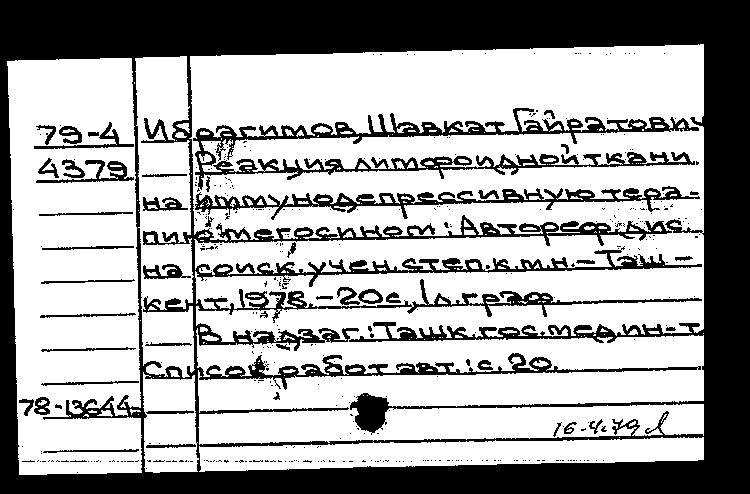 79-4 Ибрагимов, Шавкат Гайратович
4379 Реакция лимфоидной ткани
на иммунодепрессивную тера-
пию мегосином: Автореф. дис.
на соиск. учен. степ. к.м.н. - Таш-
кент, 1978. - 20с., 1л. граф.
В надзаг.: Ташк. гос. мед. ин-т.
Список работ авт.: с. 20.
78-13644
16.4.79